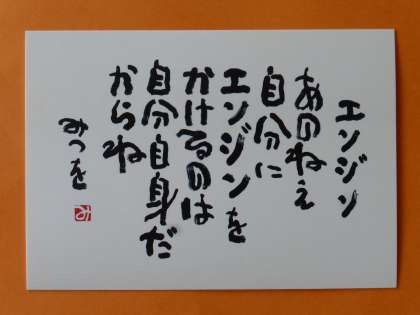 エンジン
あのねえ
自分に
エンジンを
かけるのは
自分自身だ
からね
みつを
み